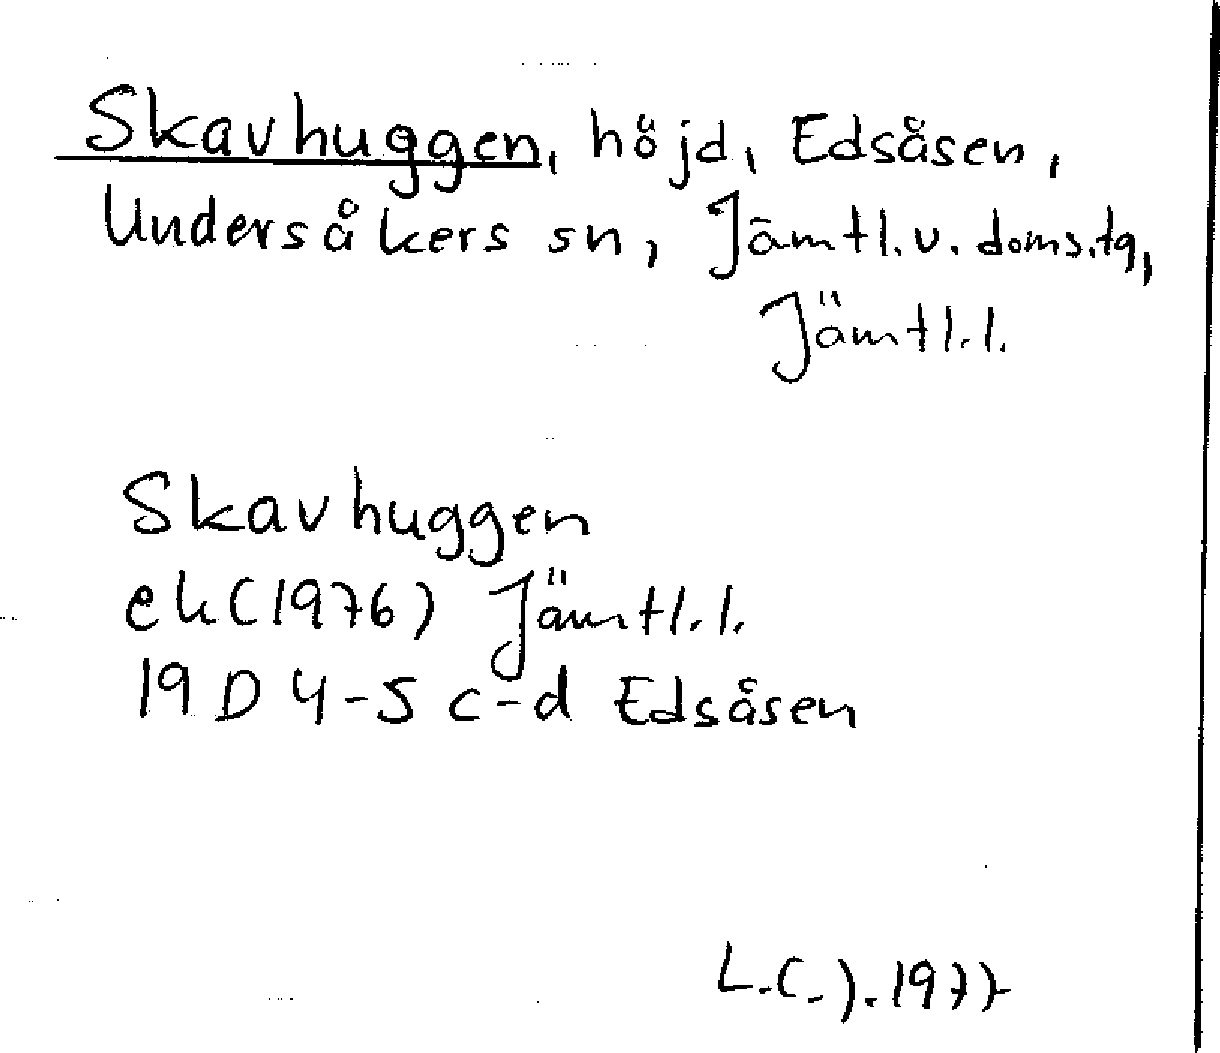 Skavhuggen, höjd, Edsåsen,
Undersåkers sn, Jämtl.v.doms.tg,
Jämtl.l.
Skavhuggen
ek(1976) Jämtl.l.
19 D 4-5 c-d Edsåsen
L.C.J.1977